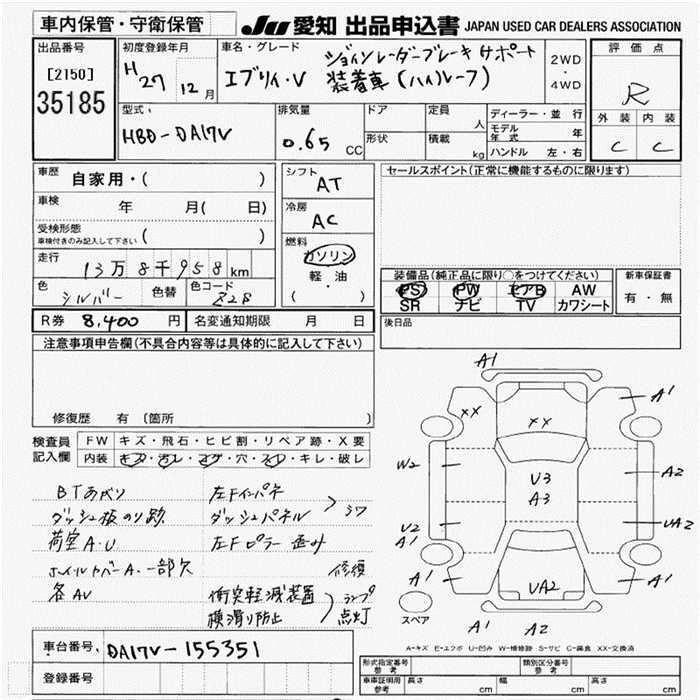 車内保管・守衛保管
JU 愛知 出品申込書 JAPAN USED CAR DEALERS ASSOCIATION
出品番号
[2150]
35185
初度登録年月
H 27 12 月
車名・グレード
エブリィ・V
ジョインレーダーブレーキサポート
装着車(ハイルーフ)
2WD
・
4WD
評価点
R
外装 内装
C C
型式:
HBD-DA17V
排気量
0.65 CC
ドア
形状
定員
人
積載
kg
ディーラー・並行
モデル年式 年
ハンドル 左・右
車歴
自家用・( )
車検
年 月( 日)
受検形態
車検付きのみ記入して下さい ( )
走行
13万8千958km
色
シルバー
色替
色コード
828
シフト
AT
冷房
AC
燃料
ガソリン
軽・油
( )
セールスポイント(正常に機能するものに限ります)
装備品(純正品に限り○をつけてください)
PS PW エアB AW
SR ナビ TV カワシート
新車保証書
有・無
R券 8,400 円
名変通知期限 月 日
後日品
注意事項申告欄(不具合内容等は具体的に記入して下さい)
修復歴 有 (箇所
検査員
記入欄
FW キズ・飛石・ヒビ割・リペア跡・X要
内装 キズ・汚レ・コゲ・穴・スレ・キレ・破レ
BTあがり
ダッシュ板のり跡
荷室A.U
ホイルカバーA.一部欠
各AU
左Fインパネ
ダッシュパネル
シワ
左Fピラー歪み
修復
衝突軽減装置
横滑り防止
ランプ
点灯
A1
A1
XX
XX
W2
U3
A3
A2
U2
A1
UA2
A1
UA2
A1
スペア
A1
A2
A-キズ E-エクボ U-凹み W-補修跡 S-サビ C-腐食 XX-交換済
車台番号
DA17V-155351
登録番号
形式指定番号
参考
類別区分番号
参考
車庫証明用
参考
長さ cm
幅 cm
高さ cm